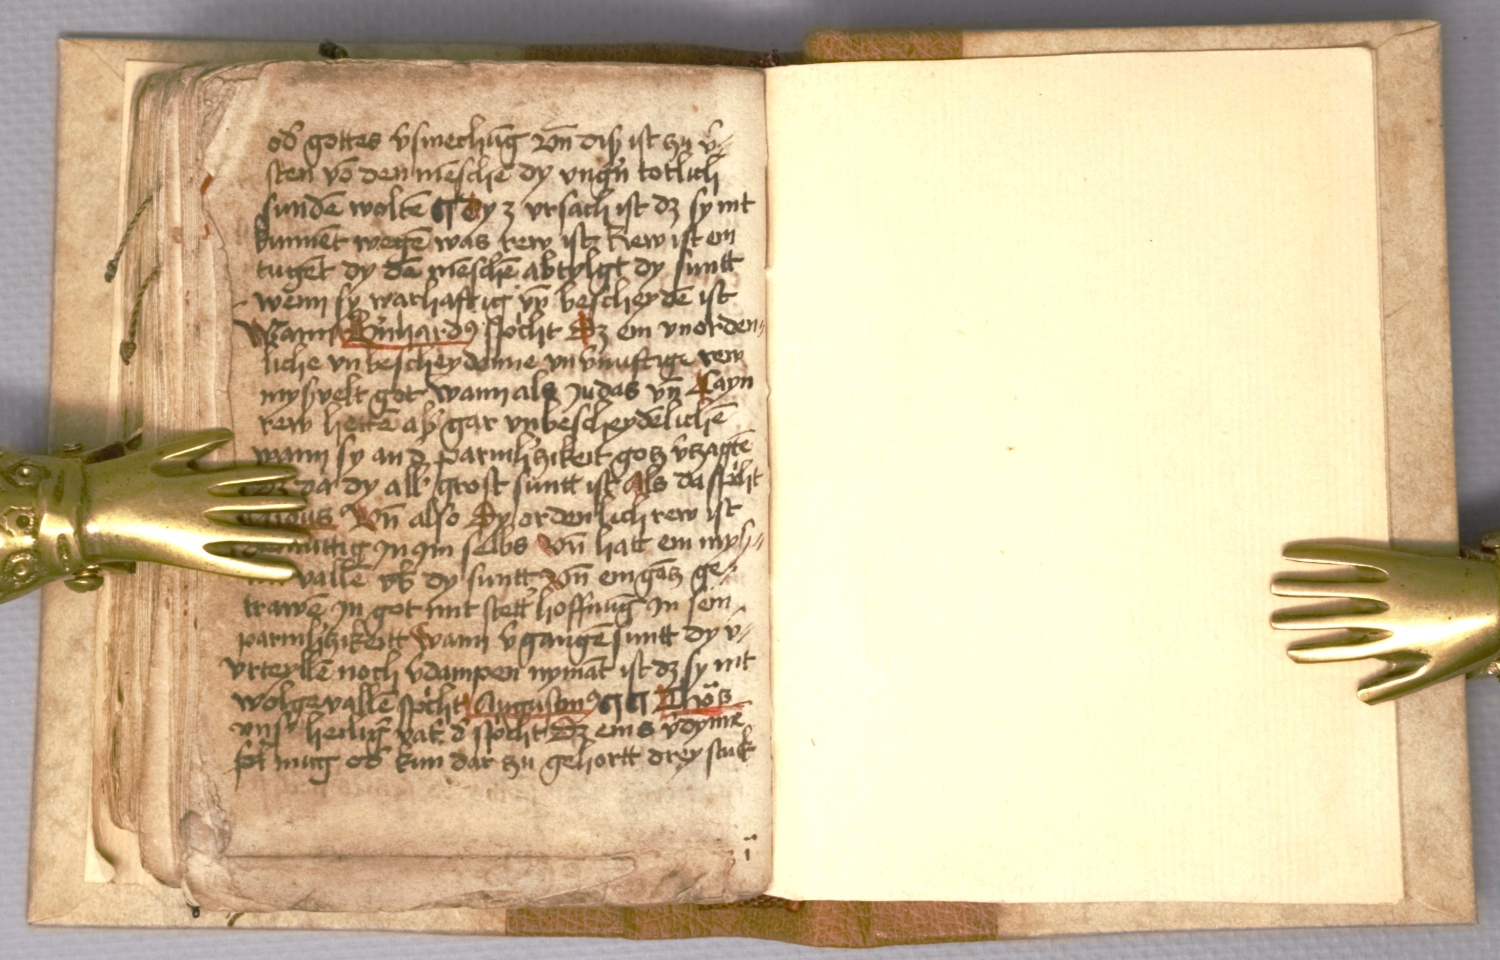 od gottes v̄smechūg Vn̄ diß ist zu v̄-
sten vō den mēsche dy vngn̄ totlich
sundē woltē ¶ Dy 3 vrsach ist dz sy nit
kunnēt wegē was rew ist Rew ist ein
tugēt dy dē mēschē abtylgt dy suntt
wenn sy warhafftig vn̄ bescheydē ist
Wann Bn̄hardꝰ spͥcht Dz ein vnorden-
liche vnbescheydenne vnv̄nuftige rew
myßvelt got wann als Judas vn̄ Cayn
rew hettē ab gar vnbescheydēlichē
wann sy an d parmhʼzikeit gotz v̄zagtē
da dy all grost suntt ist Als da spͥcht
Vn̄ also Dy ordenlich rew ist
In Im selbs Vn̄ hatt ein myß-
valle vb dy suntt Vn̄ ein gātz ge-
trawē In got mit stett hoffnūg In sein
parmhʼzikeitt Wann v̄gangē suntt dy v̄-
vrteyllē noch v̄dampen nymāt ist dz sy nit
wolgevallē spͥcht Augustinꝰ ¶¶ Thōs
vnsʼ heiligʼ vatʼ d spͥcht Dz eins v̄dyme
mug od kun dar zu gehortt drey stuk